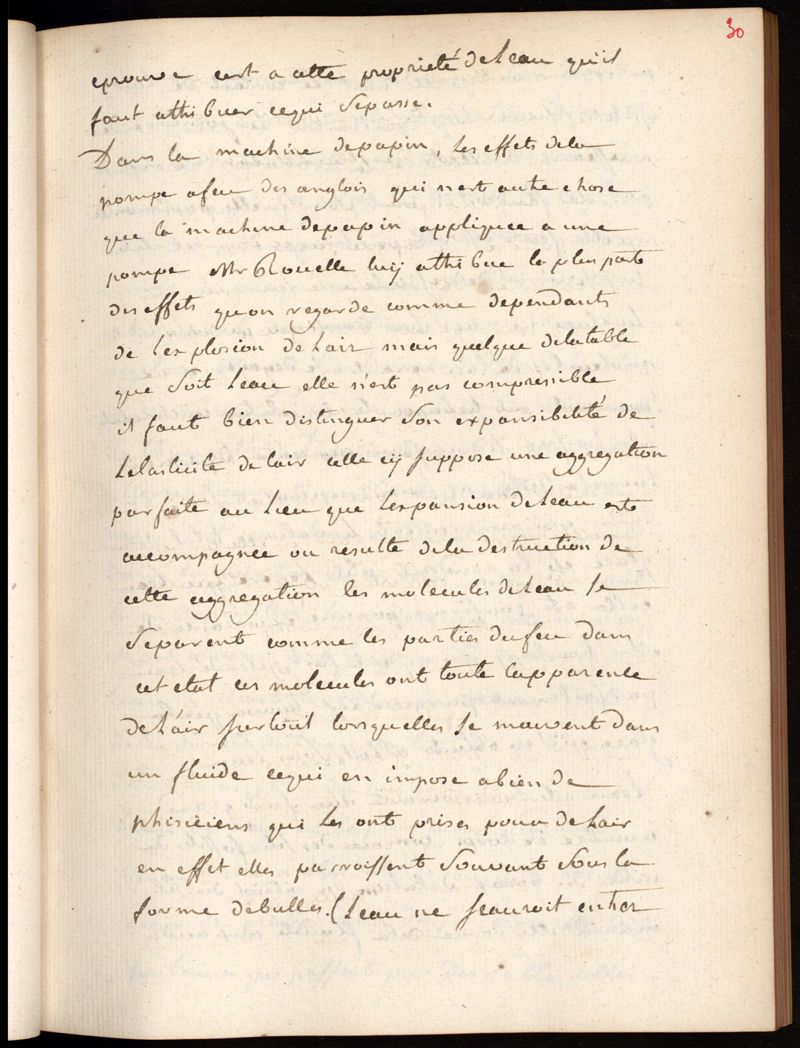 30
eprouve cest a cette proprieté de leau quil
faut attribuer cequi sepasse.
Dans la machine depapin, les effets dela
pompe afeu des anglois qui nest autre chose
que la machine depapin appliquee a une
pompe Mr Rouelle luy attribue la plus part
des effets quon regarde comme dependants
de lexplosion de lair mais quelque dilatable
que soit leau elle n'est pas compressible
il faut bien distinguer son expansibilité de
lelasticite de lair celle cy suppose une aggregation
parfaite au lieu que lexpansion de leau est
accompagnée ou resulte dela destruction de
cette aggregation les molecules de leau se
separent comme les parties du feu dans
cet etat ces molecules ont toute lapparence
de l'air surtout lorsquelles se mauvent dans
un fluide cequi en impose abien de
phisiciens qui les ont prises pour de lair
en effet elles parroissent souvant sous la
forme debulles. (leau ne scauroit entrer